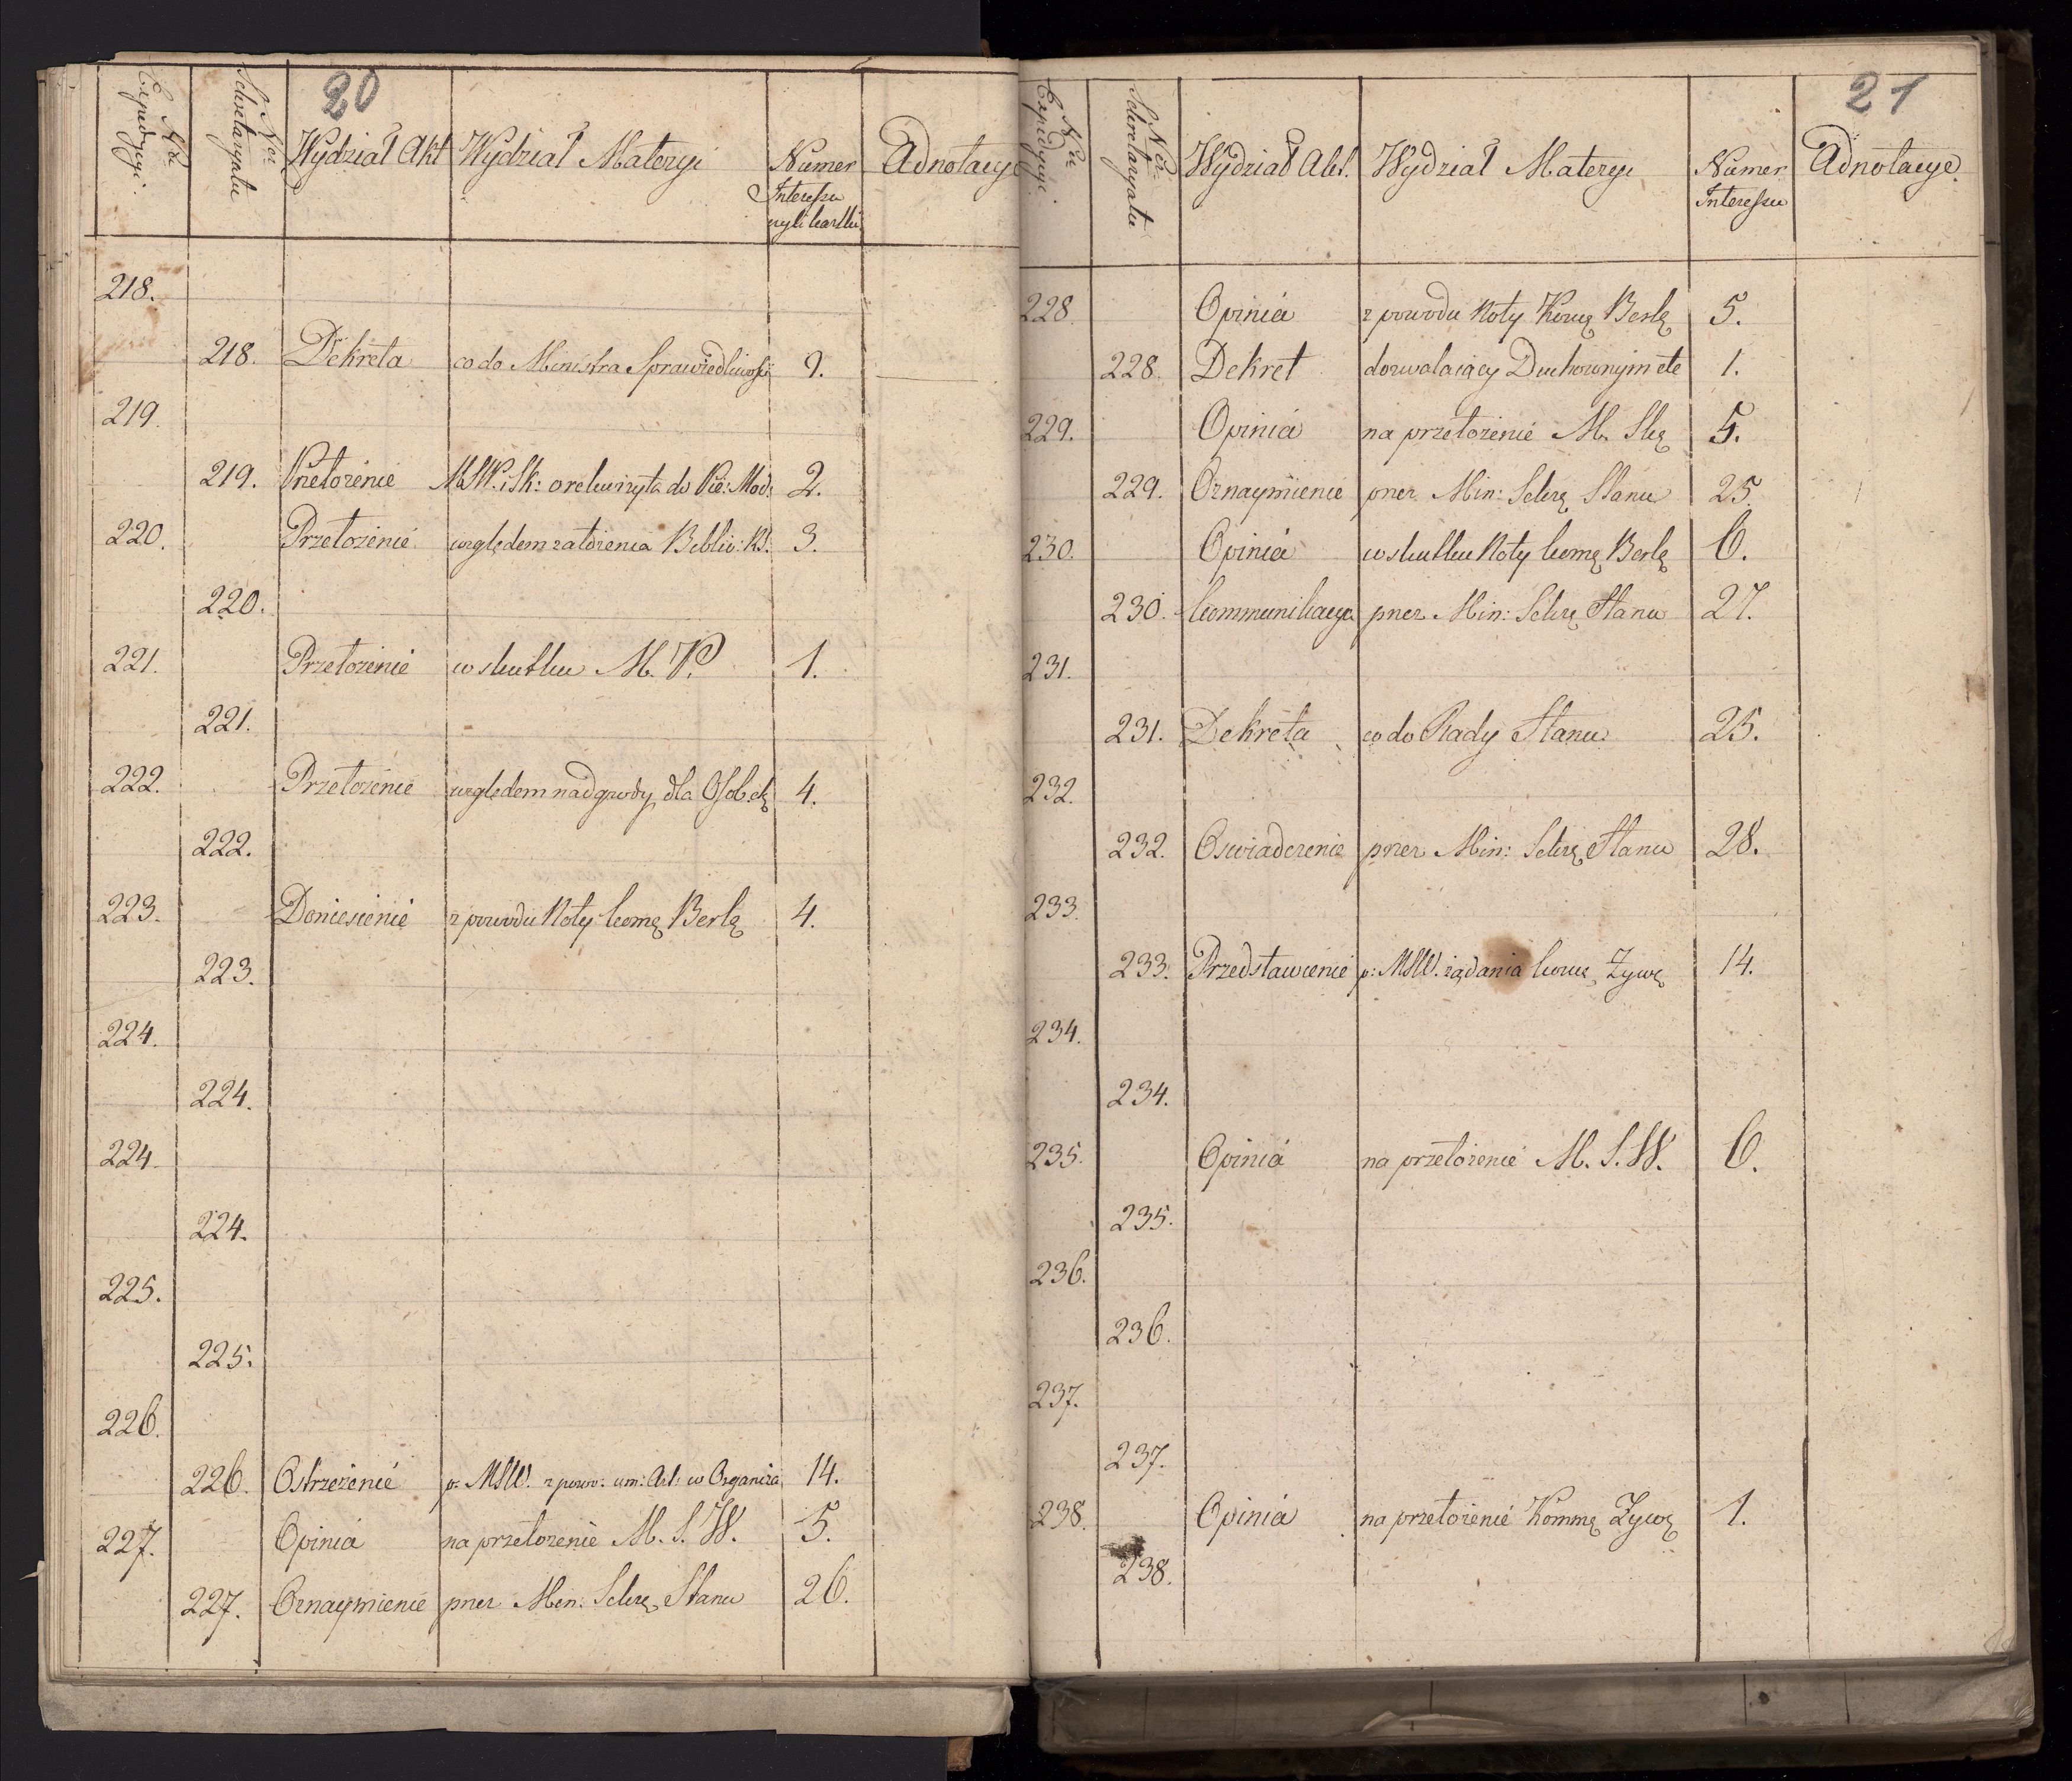 20
Nr Expedycyi.
Nor Sekretaryatu
Wydział Akt
Wydział Materyi
Numer Interessu czyli kartki
Adnotacye
218.
218. Dekreta co do Ministra Sprawiedliwości 9.
219.
219. Przełożenie M.S.W. i Sk: o rekwizyta do Pie: Mod: 2.
220. Przełożenie względem założenia Biblio: Kr. 3.
220.
221. Przełożenie w skutku M. P. 1.
221.
222. Przełożenie względem nadgrody dla Osob etc 4.
222.
223. Doniesienie z powodu Noty komą Berlą 4.
223.
224.
224.
224.
224.
225.
225.
226.
226. Ostrzeżenie p: MSW. z powo: um: Art: w Organiza 14.
227. Opinia na przełożenie M. S. W. 5.
227. Oznaymienie przez Min: Sekrę Stanu 26.
21
Nr Expedycyi.
Nor Sekretaryatu
Wydział Akt.
Wydział Materyi
Numer Interessu
Adnotacye.
228. Opinia z powodu Noty Komą Berlą 5.
228. Dekret dozwalaiący Duchownym etc 1.
229. Opinia na przełożenie M. Skę 5.
229. Oznaymienie przez Min: Sekrę Stanu 25.
230. Opinia w skutku Noty komą Berlą 6.
230. Kommunikacya przez Min: Sekrę Stanu 27.
231.
231. Dekreta co do Rady Stanu 25.
232.
232. Oswiadczenie przez Min: Sekrę Stanu 28.
233.
233. Przedstawienie p: MSW. żądania komą Żywę 14.
234.
234.
235. Opinia na przełożenie M. S. W. 6.
235.
236.
236.
237.
237.
238. Opinia na przełożenie Kommę Żywę 1.
238.